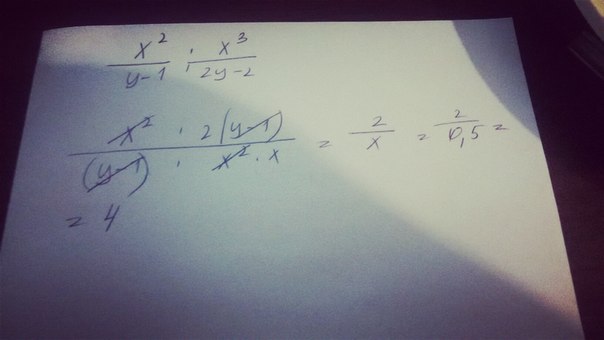 x²/(y-1) : x³/(2y-2)
x² · 2(y-1)/((y-1) · x² · x) = 2/x = 2/0,5 =
= 4